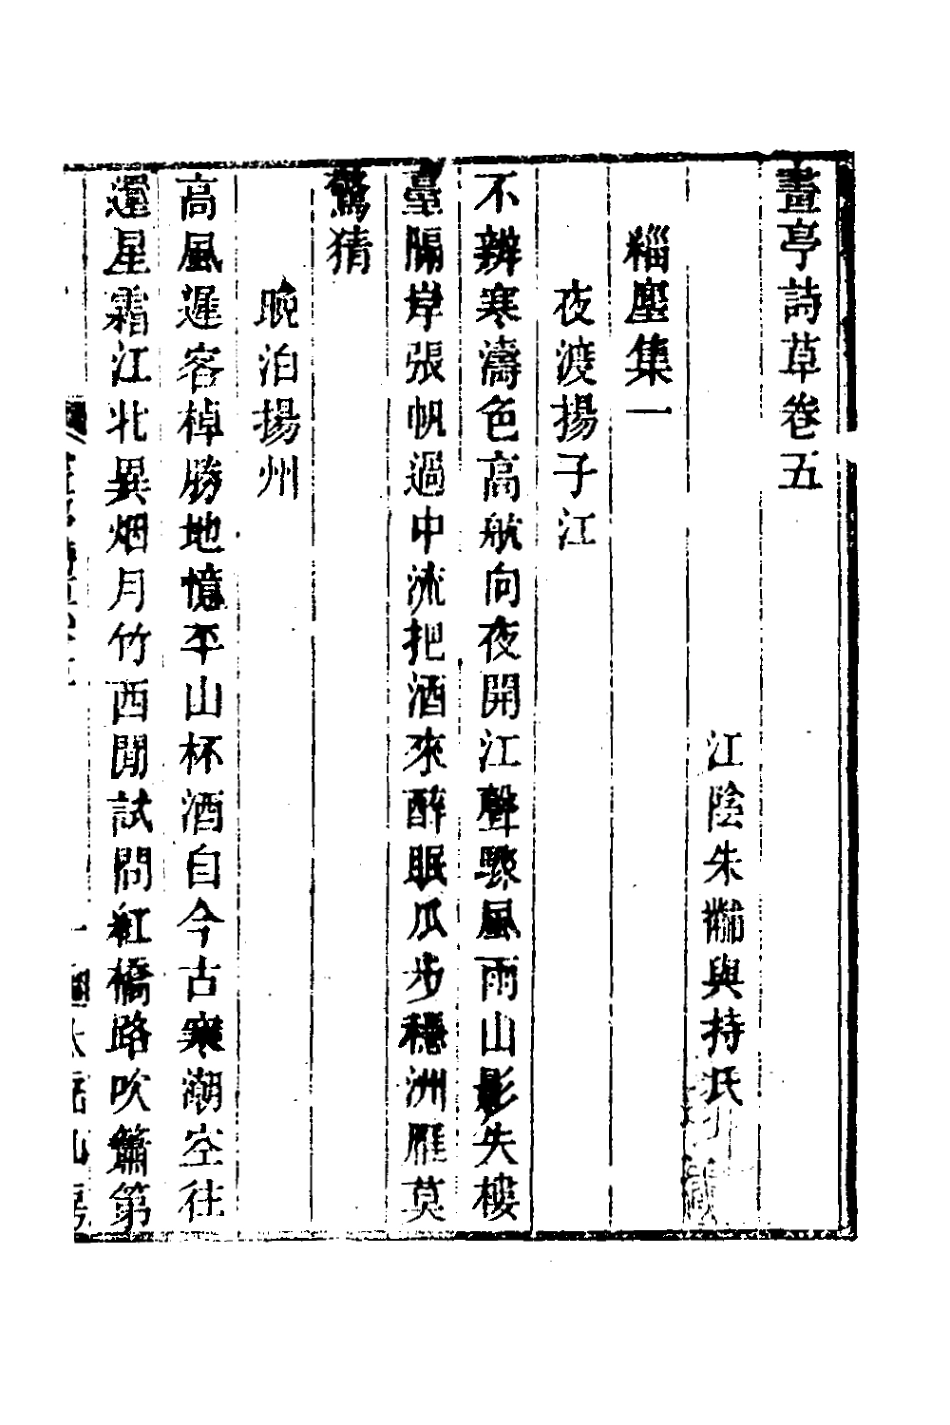 畫亭詩草卷五
江陰朱黼與持氏
緇塵集一
夜渡揚子江
不辨寒濤色高航向夜開江聲驟風雨山影失樓
臺隔岸張帆過中流把酒來醉眠瓜步穩洲雁莫
驚猜
晚泊揚州
高風遲客棹勝地憶平山杯酒自今古寒潮空往
還星霜江北異烟月竹西閒試問紅橋路吹簫第